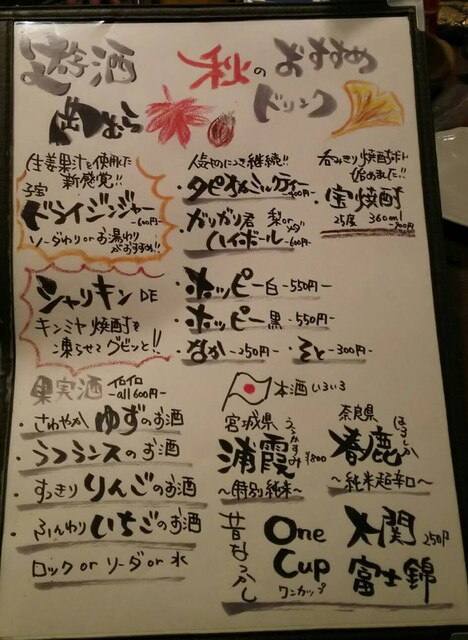 遊酒
岡むら
秋のおすすめ
ドリンク
生姜果汁を使用した
新感覚!!
宝
ドライジンジャー
-600円-
ソーダわりorお湯わり
がおすすめ!!
人気につき継続!!
・タピオカミルクティー
・ガリガリ君 梨orソーダ
ハイボール -600円-
呑みきり焼酎ボトル
始めました!!
・宝焼酎
25度 360ml
-900円-
シャリキン DE
キンミヤ焼酎を
凍らせてグビッと!!
・ホッピー白 -550円-
・ホッピー黒 -550円-
・なか -250円- ・そと -300円-
果実酒 イロイロ
-all600円-
・さわやかゆずのお酒
・ラフランスのお酒
・すっきりりんごのお酒
・ふんわりいちごのお酒
ロック or ソーダ or 水
本酒いろいろ
宮城県
うらかすみ
浦霞 ¥800
〜特別純米〜
奈良県
はるしか
春鹿
〜純米超辛口〜
昔なつかし
One
Cup
ワンカップ
大関 250円
富士錦